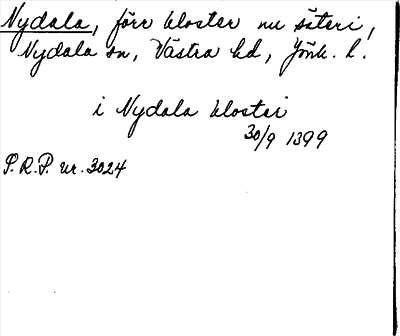 Nydala, förr kloster nu säteri,
Nydala sn, Västra hd, Jönk. l.
i Nydala kloster
30/9 1399
P.R.P. nr. 3024